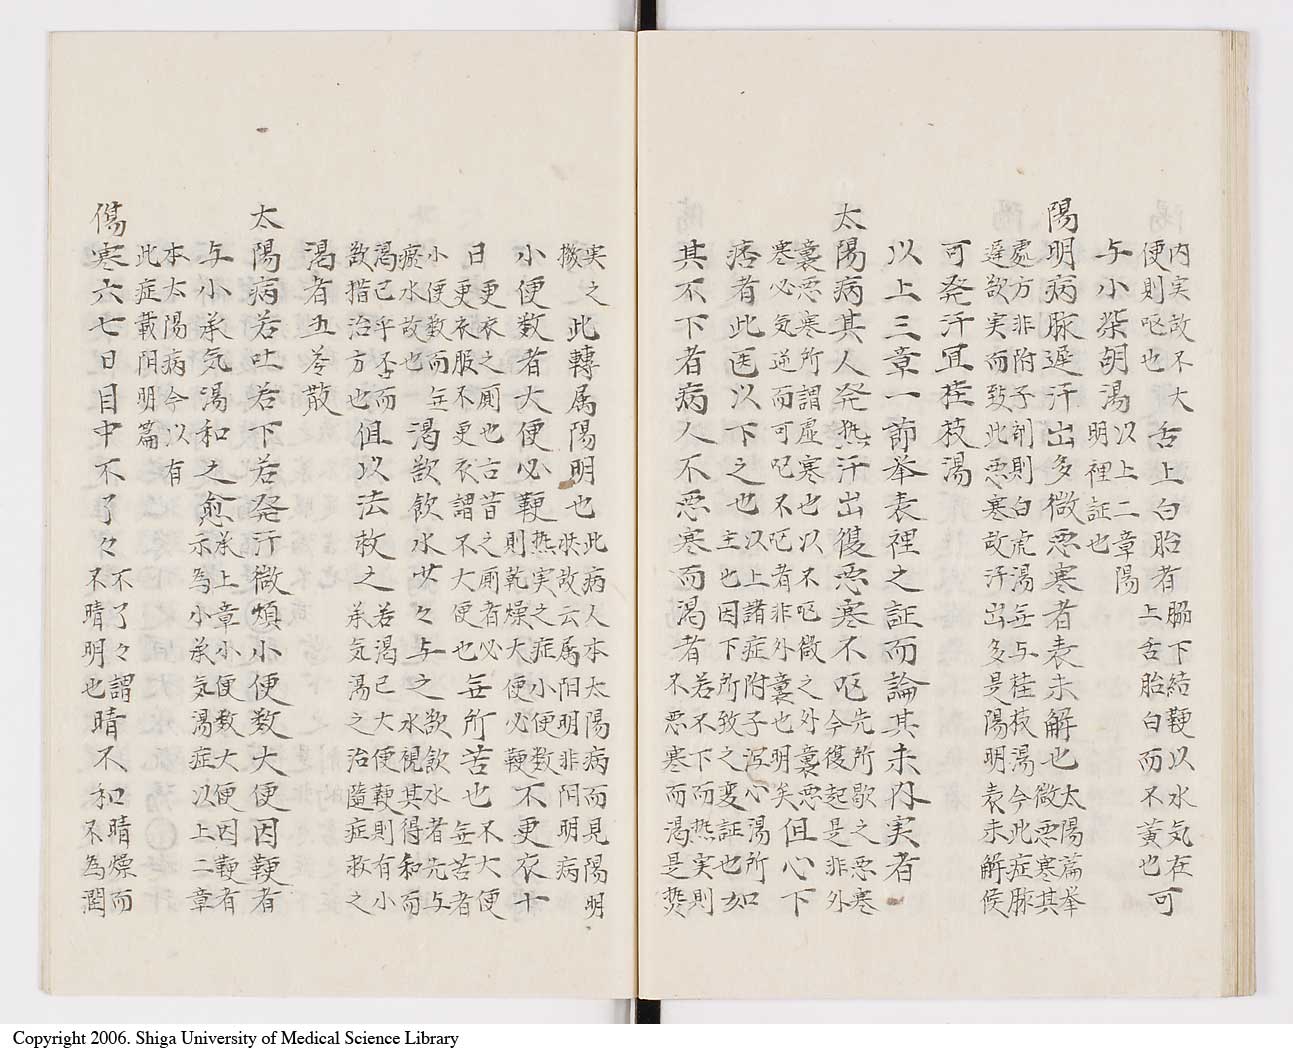 内実故不大便則呕也舌上白胎者脇下結鞕以水気在上舌胎白而不黄也可
与小柴胡湯以上二章陽明裡証也
陽明病脉遲汗出多微悪寒者表未解也太陽篇挙微悪寒其
處方非附子剤則白虎湯無与桂枝湯今此症脉遅欲実而致此悪寒故汗出多是陽明表未解候
可発汗冝桂枝湯
以上三章一節挙表裡之証而論其未内実者
太陽病其人発熱汗出復悪寒不呕先所歇之悪寒今復起是非外
嚢悪寒所謂虚寒也以不呕徴之外嚢悪寒必気逆而可呕不呕者非外嚢也明矣但心下
痞者此医以下之也以上諸症附子泻心湯所主也因下所致之変証也如
其不下者病人不悪寒而渇者若不下而熱実則不悪寒而渇是熱
実之徴此轉属陽明也此病人本太陽病而見陽明状故云属阳明非阳明病
小便数者大便必鞕熱実之症小便数則乾燥大便必鞕不更衣十
日更衣之厠也古昔之厠者必更衣服不更衣謂不大便也無所苦也不大便無苦者
小便数而無瘀水故也渇欲飲水少々与之欲飲水者先与水視其得和而
渇已乎否而欲措治方也但以法救之若渇已大便鞕則有小承気湯之治随症救之
渇者五苓散
太陽病若吐若下若発汗微煩小便数大便因鞕者
与小承気湯和之愈承上章小便数大便因鞕有示為小承気湯症以上二章
本太陽病今以有此症載阳明篇
傷寒六七日目中不了々不了々謂不晴明也晴不和晴燥而不為潤